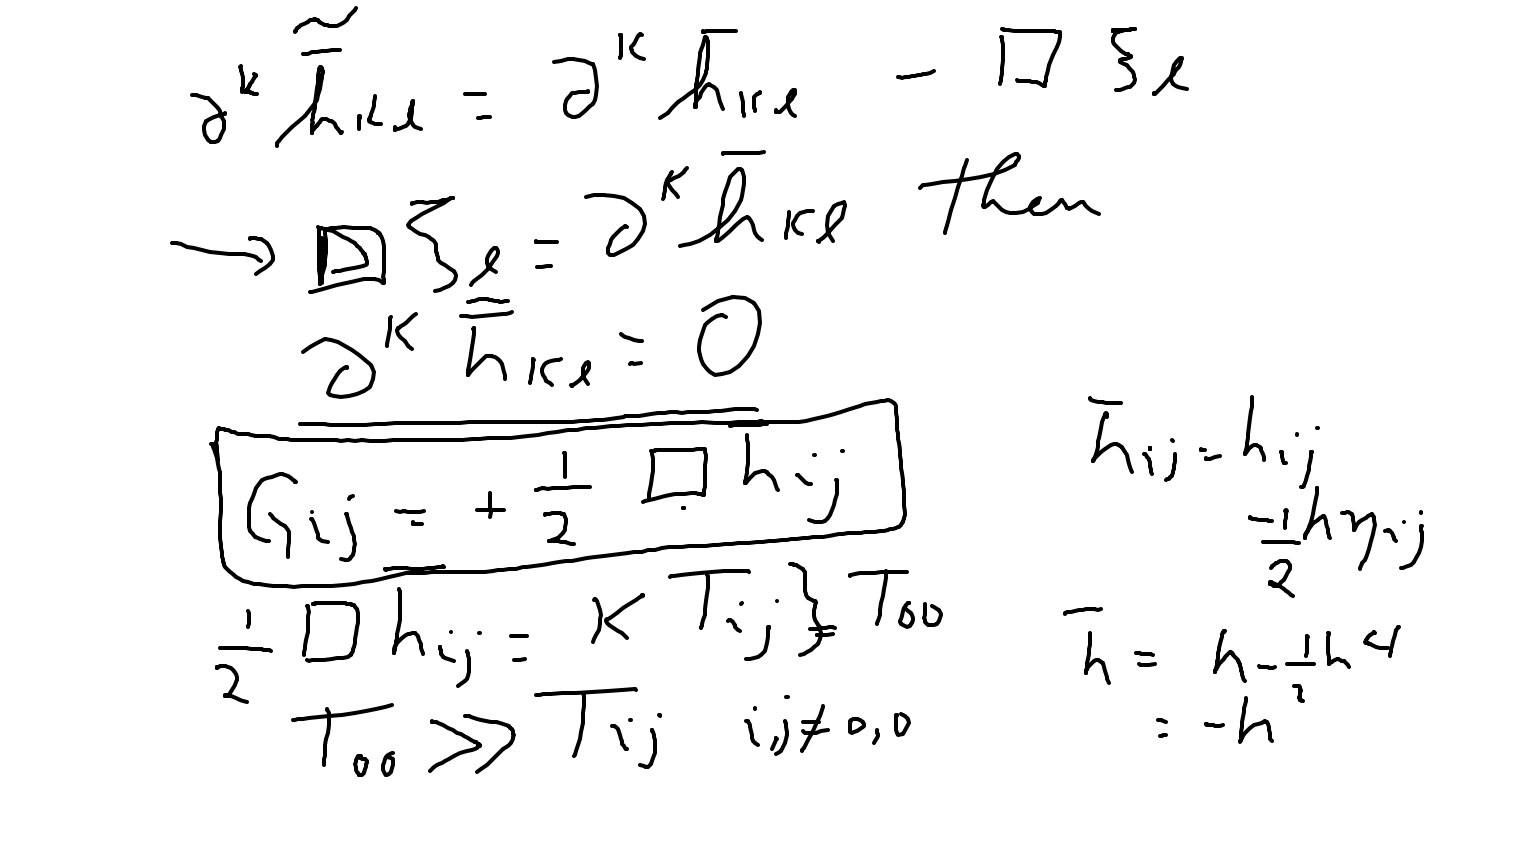 ∂^K h̄̃_{Kl} = ∂^K h̄_{Kl} - □ ξ_l
→ □ ξ_l = ∂^K h̄_{Kl} then
∂^K h̄_{Kl} = 0
G_{ij} = + 1/2 □ h̄_{ij}
1/2 □ h̄_{ij} = K T_{ij} } = T_{00}
T_{00} >> T_{ij} i,j ≠ 0,0
h̄_{ij} = h_{ij}
-1/2 h η_{ij}
h̄ = h - 1/2 h 4
= -h